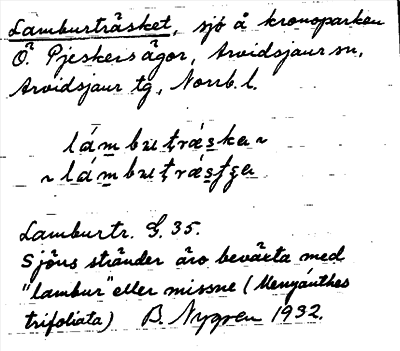 Lamburträsket, sjö å kronoparken
Ö. Pjeskers ägor, Arvidsjaur sn,
Arvidsjaur tg, Norrb. l.
lámbutrǽska ~
~ lámbutrǽsʃa
Lamburtr. G. 35.
Sjöns stränder äro beväxta med
"lambur" eller missne (Menyánthes
trifoliata) B. Nygren 1932.